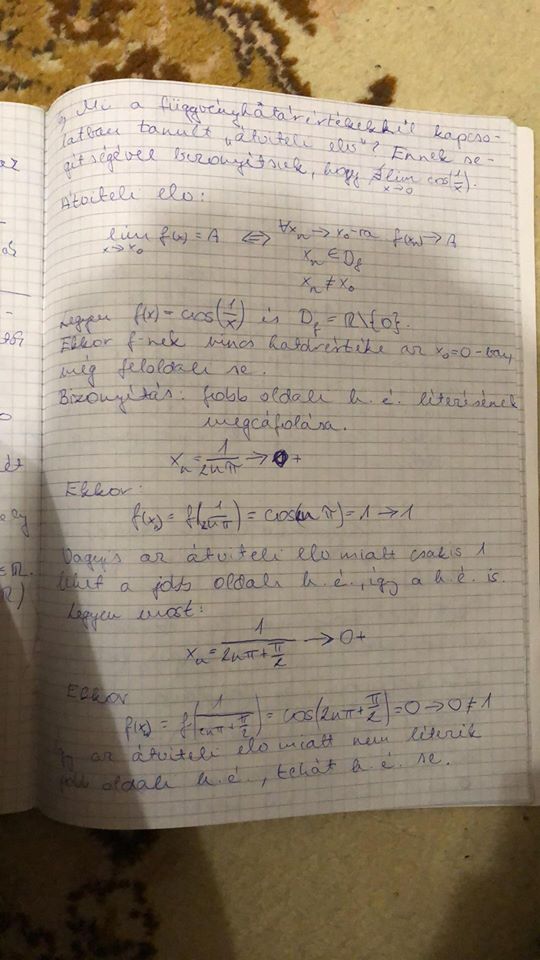 Mi a függvényhatárértékekkel kapcso-
latban tanult „átviteli elv"? Ennek se-
gítségével bizonyítsuk, hogy ∄ lim x→0 cos(1/x).
Átviteli elv:
lim x→x₀ f(x) = A ⇔ ∀xₙ → x₀-ra f(xₙ) → A
xₙ ∈ D_f
xₙ ≠ x₀
Legyen f(x) = cos(1/x) és D_f = ℝ\{0}.
Ekkor f-nek nincs határértéke az x₀=0-ban,
még féloldali se.
Bizonyítás: jobb oldali h.é. létezésének
megcáfolása.
xₙ = 1/2nπ → 0+
Ekkor:
f(xₙ) = f(1/2nπ) = cos(2nπ) = 1 → 1
Vagyis az átviteli elv miatt csakis 1
lehet a jobb oldali h.é., így a h.é. is.
Legyen most:
xₙ = 1/(2nπ + π/2) → 0+
Ekkor
f(xₙ) = f(1/(2nπ + π/2)) = cos(2nπ + π/2) = 0 → 0 ≠ 1
Így az átviteli elv miatt nem létezik
jobb oldali h.é., tehát h.é. se.